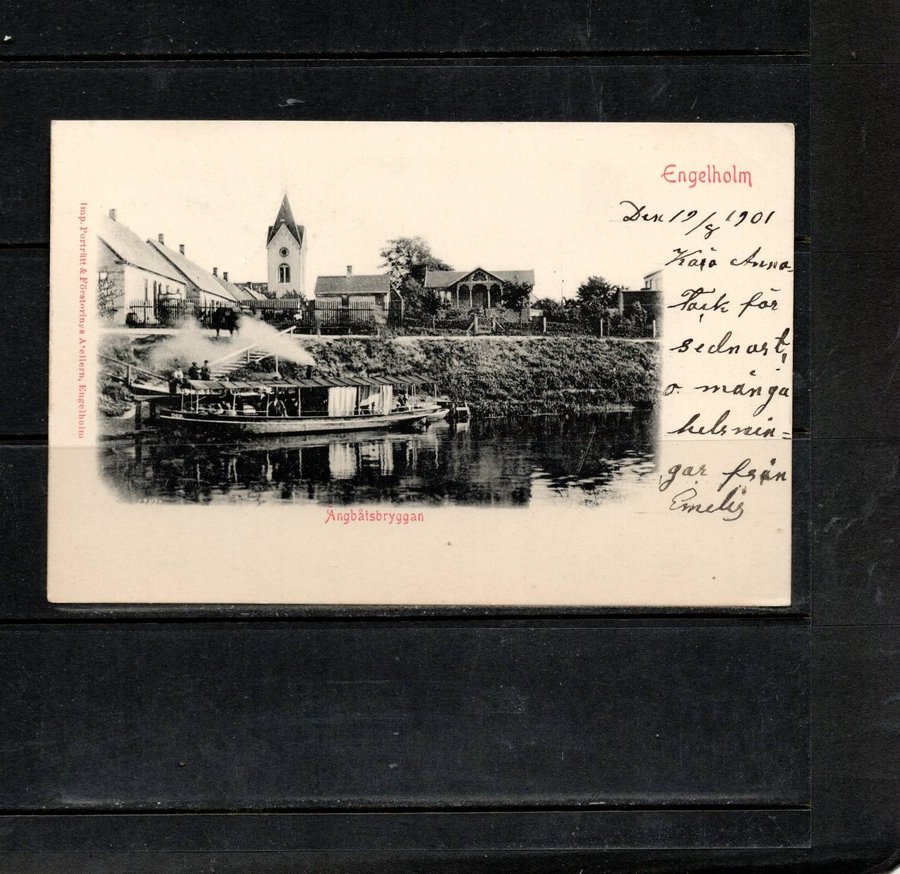 Engelholm
Den 19/8 1901
Kära Anna.
Tack för
sednast,
o. många
helsnin-
gar från
Emelis
Ångbåtsbryggan
Imp. Porträtt & Förstorings Ateliern, Engelholm